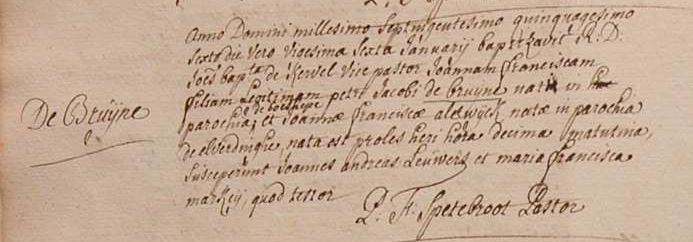 Anno Domini millesimo septingentesimo quinquagesimo
sexto die vero vigesima sexta Januarij baptizavit R. D.
Joēs bapta de Kervel vice pastor Joannam franciscam
filiam legitimam petri Jacobi de bruyne nati in
parochia et Joannæ franciscæ alewyck natæ in parochia
De Bruijne
de elverdinghe, nata est proles heri hora decima matutina,
susceperunt Joannes andreas Leuwers et maria francisca
markeij, quod testor
P. F. Spetebroot Pastor